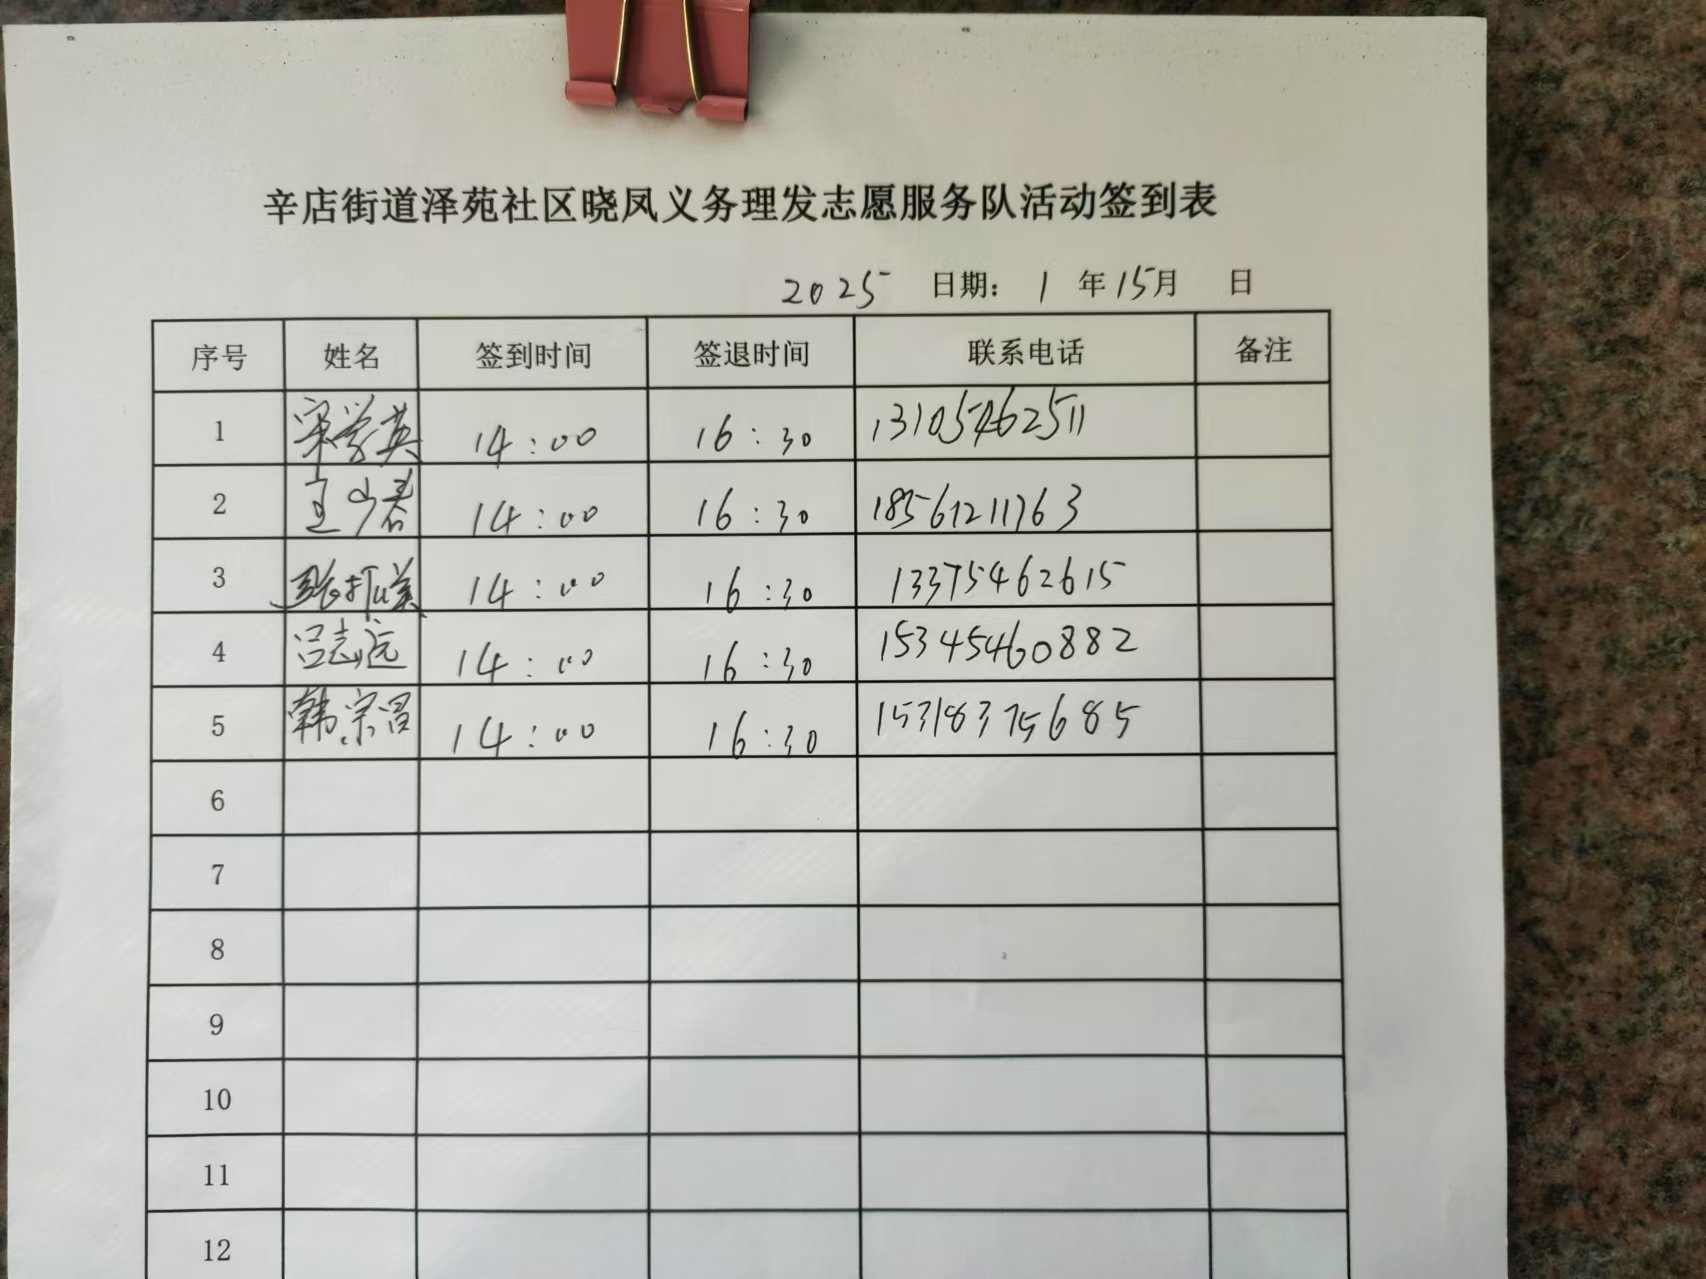 辛店街道泽苑社区晓凤义务理发志愿服务队活动签到表
2025 日期: 1 年 15 月 日
序号 姓名 签到时间 签退时间 联系电话 备注
1 宋学英 14:00 16:30 13105462511
2 14:00 16:30 18561211763
3 14:00 16:30 13375462615
4 吕志远 14:00 16:30 15345460882
5 韩宗昌 14:00 16:30 15318375685
6
7
8
9
10
11
12